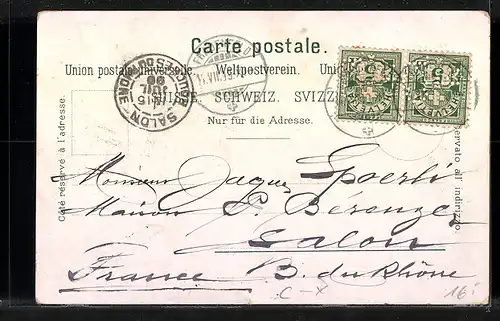 Carte postale.
Union postale universelle. Weltpostverein.
SUISSE. SCHWEIZ. SVIZZERA
Nur für die Adresse.
Côté réservé à l'adresse.
SALON
BOUCHES DU RHONE
Monsieur Jaques Spoerli
Maison P. Berenger
Salon
France B. du Rhône
16